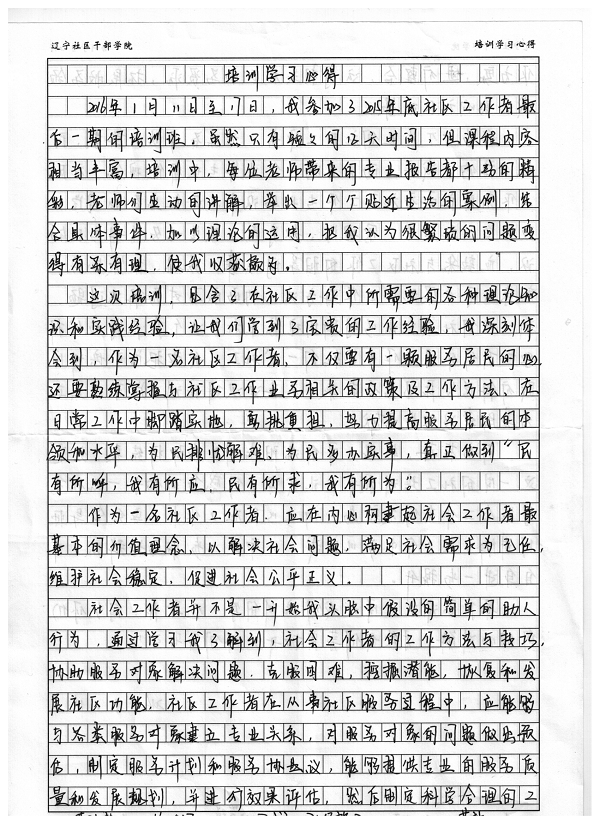 辽宁社区干部学院 培训学习心得
培训学习心得
2016年1月11日至17日,我参加了2015年底社区工作者最
后一期的培训班,虽然只有短短的12天时间,但课程内容
相当丰富,培训中,每位老师带来的专业报告都十分的精
彩,老师们生动的讲解,举出一个个贴近生活的案例,结
合具体事件,加以理论的运用,把我认为很繁琐的问题变
得有条有理,使我收获颇多。
这次培训,包含了在社区工作中所需要的各种理论知
识和实践经验,让我们学到了宝贵的工作经验,我深刻体
会到,作为一名社区工作者,不仅要有一颗服务居民的心,
还要熟练掌握与社区工作业务相关的政策及工作方法,在
日常工作中脚踏实地,勇挑重担,努力提高服务居民的本
领和水平,为民排忧解难、为民多办实事,真正做到“民
有所呼,我有所应,民有所求,我有所为”。
作为一名社区工作者,应在内心构建起社会工作者最
基本的价值理念,以解决社会问题,满足社会需求为己任,
维护社会稳定,促进社会公平正义。
社会工作者并不是一开始我头脑中假设的简单的助人
行为,通过学习我了解到,社会工作者的工作方法与技巧,
协助服务对象解决问题,克服困难,挖掘潜能,恢复和发
展社区功能,社区工作者在从事社区服务过程中,应能够
与各类服务对象建立专业关系,对服务对象的问题做出预
估,制定服务计划和服务协议,能够提供专业的服务质
量和发展规划,并进行效果评估,然后制定科学合理的工